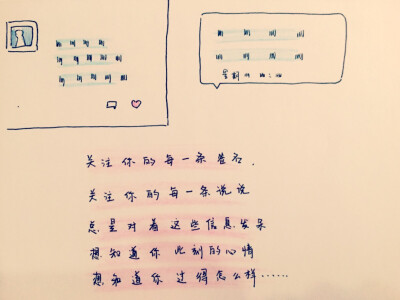 星期
关注你的每一条签名.
关注你的每一条说说
总是对着这些信息发呆
想知道你此刻的心情
想知道你过得怎么样……